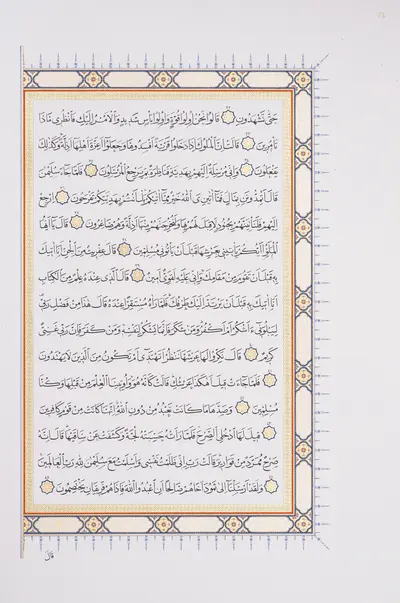 حَتّٰى تَشْهَدُونِ ۝ قَالُوا نَحْنُ اُولُوا قُوَّةٍ وَاُولُوا بَأْسٍ شَدِيدٍ وَالْاَمْرُ اِلَيْكِ فَانْظُرِي مَاذَا
تَأْمُرِينَ ۝ قَالَتْ اِنَّ الْمُلُوكَ اِذَا دَخَلُوا قَرْيَةً اَفْسَدُوهَا وَجَعَلُوا اَعِزَّةَ اَهْلِهَا اَذِلَّةً وَكَذٰلِكَ
يَفْعَلُونَ ۝ وَاِنِّي مُرْسِلَةٌ اِلَيْهِمْ بِهَدِيَّةٍ فَنَاظِرَةٌ بِمَ يَرْجِعُ الْمُرْسَلُونَ ۝ فَلَمَّا جَاءَ سُلَيْمٰنَ
قَالَ اَتُمِدُّونَنِ بِمَالٍ فَمَا اٰتٰينِيَ اللّٰهُ خَيْرٌ مِمَّا اٰتٰيكُمْ بَلْ اَنْتُمْ بِهَدِيَّتِكُمْ تَفْرَحُونَ ۝ اِرْجِعْ
اِلَيْهِمْ فَلَنَأْتِيَنَّهُمْ بِجُنُودٍ لَا قِبَلَ لَهُمْ بِهَا وَلَنُخْرِجَنَّهُمْ مِنْهَا اَذِلَّةً وَهُمْ صَاغِرُونَ ۝ قَالَ يَا اَيُّهَا
الْمَلَؤُا اَيُّكُمْ يَأْتِينِي بِعَرْشِهَا قَبْلَ اَنْ يَأْتُونِي مُسْلِمِينَ ۝ قَالَ عِفْرِيتٌ مِنَ الْجِنِّ اَنَا اٰتِيكَ
بِهِ قَبْلَ اَنْ تَقُومَ مِنْ مَقَامِكَ وَاِنِّي عَلَيْهِ لَقَوِيٌّ اَمِينٌ ۝ قَالَ الَّذِي عِنْدَهُ عِلْمٌ مِنَ الْكِتَابِ
اَنَا اٰتِيكَ بِهِ قَبْلَ اَنْ يَرْتَدَّ اِلَيْكَ طَرْفُكَ فَلَمَّا رَاٰهُ مُسْتَقِرًّا عِنْدَهُ قَالَ هٰذَا مِنْ فَضْلِ رَبِّي
لِيَبْلُوَنِي ءَاَشْكُرُ اَمْ اَكْفُرُ وَمَنْ شَكَرَ فَاِنَّمَا يَشْكُرُ لِنَفْسِهِ وَمَنْ كَفَرَ فَاِنَّ رَبِّي غَنِيٌّ
كَرِيمٌ ۝ قَالَ نَكِّرُوا لَهَا عَرْشَهَا نَنْظُرْ اَتَهْتَدِي اَمْ تَكُونُ مِنَ الَّذِينَ لَا يَهْتَدُونَ
۝ فَلَمَّا جَاءَتْ قِيلَ اَهٰكَذَا عَرْشُكِ قَالَتْ كَاَنَّهُ هُوَ وَاُوتِينَا الْعِلْمَ مِنْ قَبْلِهَا وَكُنَّا
مُسْلِمِينَ ۝ وَصَدَّهَا مَا كَانَتْ تَعْبُدُ مِنْ دُونِ اللّٰهِ اِنَّهَا كَانَتْ مِنْ قَوْمٍ كَافِرِينَ
۝ قِيلَ لَهَا ادْخُلِي الصَّرْحَ فَلَمَّا رَاَتْهُ حَسِبَتْهُ لُجَّةً وَكَشَفَتْ عَنْ سَاقَيْهَا قَالَ اِنَّهُ
صَرْحٌ مُمَرَّدٌ مِنْ قَوَارِيرَ قَالَتْ رَبِّ اِنِّي ظَلَمْتُ نَفْسِي وَاَسْلَمْتُ مَعَ سُلَيْمٰنَ لِلّٰهِ رَبِّ الْعَالَمِينَ
۝ وَلَقَدْ اَرْسَلْنَا اِلٰى ثَمُودَ اَخَاهُمْ صَالِحًا اَنِ اعْبُدُوا اللّٰهَ فَاِذَا هُمْ فَرِيقَانِ يَخْتَصِمُونَ ۝
قَالَ